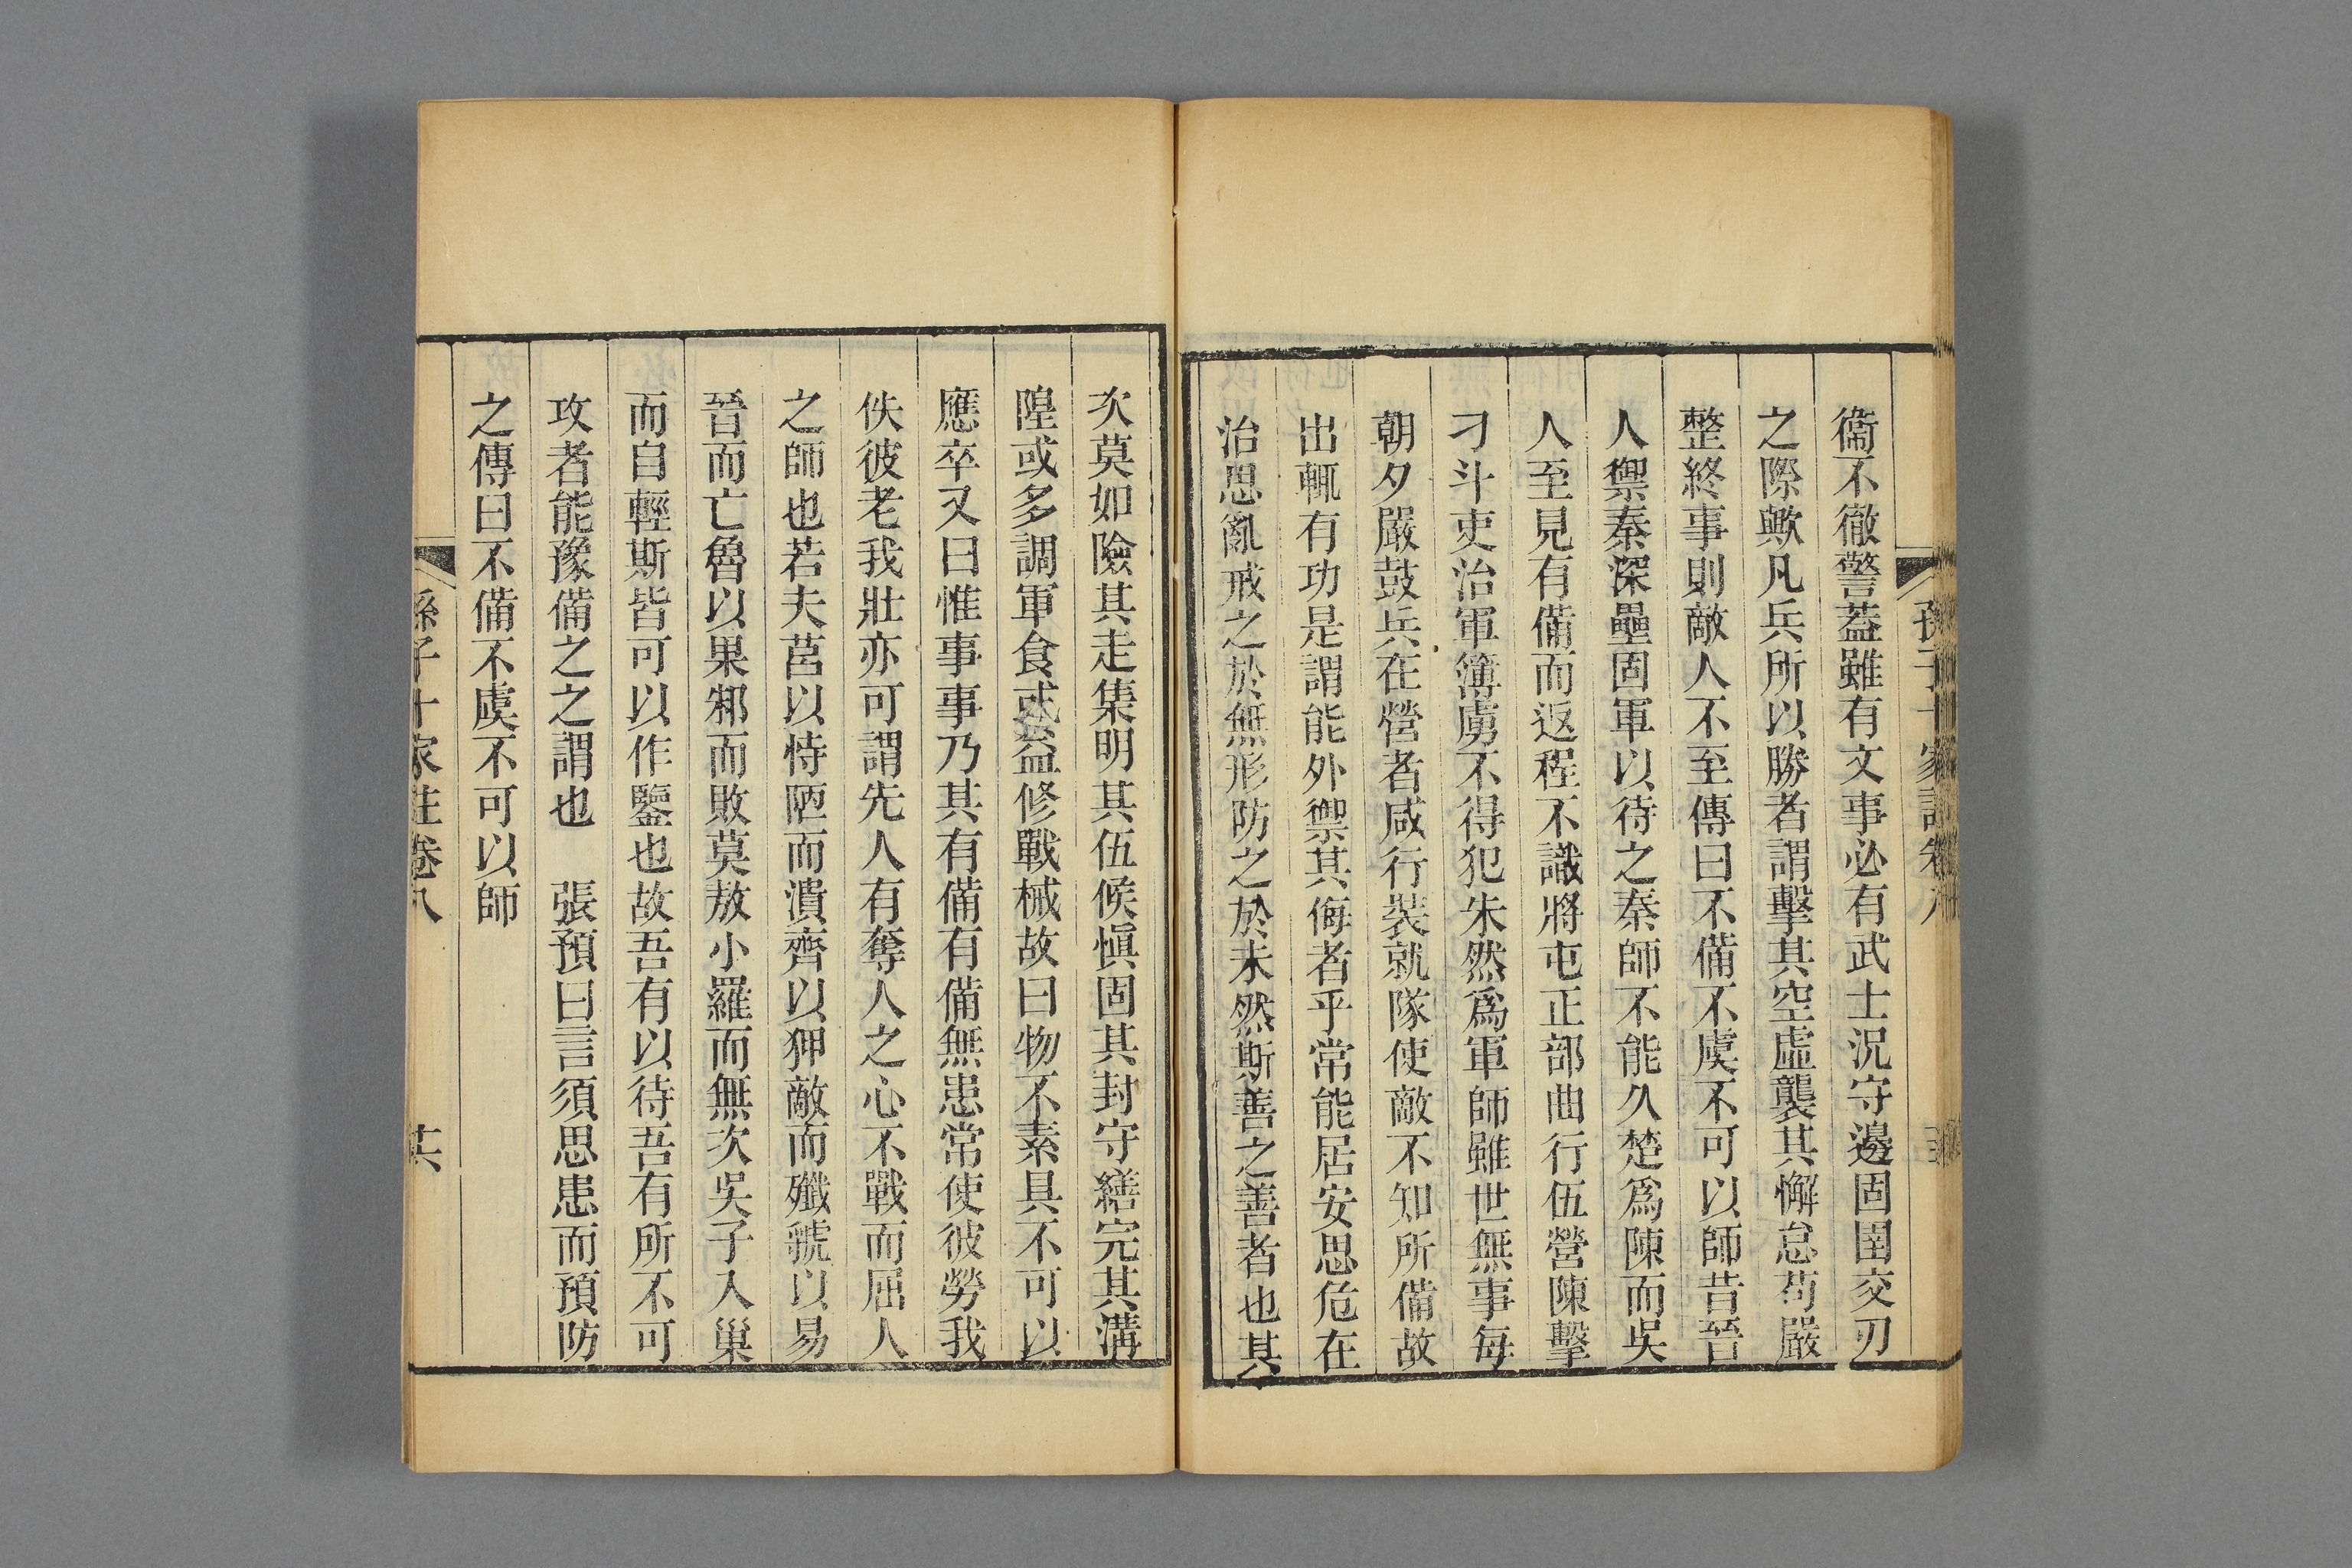 孫子十家註卷八
衞不徹警蓋雖有文事必有武士況守邊固圉交刃
之際歟凡兵所以勝者謂擊其空虛襲其懈怠苟嚴
整終事則敵人不至傳曰不備不虞不可以師昔晉
人禦秦深壘固軍以待之秦師不能久楚爲陳而吳
人至見有備而返程不識將屯正部曲行伍營陳擊
刁斗吏治軍簿虜不得犯朱然爲軍師雖世無事每
朝夕嚴鼓兵在營者咸行裝就隊使敵不知所備故
出輒有功是謂能外禦其侮者乎常能居安思危在
治思亂戒之於無形防之於未然斯善之善者也其
次莫如險其走集明其伍候愼固其封守繕完其溝
隍或多調軍食或益修戰械故曰物不素具不可以
應卒又曰惟事事乃其有備有備無患常使彼勞我
佚彼老我壯亦可謂先人有奪人之心不戰而屈人
之師也若夫莒以恃陋而潰齊以狎敵而殲虢以易
晉而亡魯以果邾而敗莫敖小羅而無次吳子入巢
而自輕斯皆可以作鑒也故吾有以待吾有所不可
攻者能豫備之之謂也　張預曰言須思患而預防
之傳曰不備不虞不可以師
孫子十家註卷八　廿六